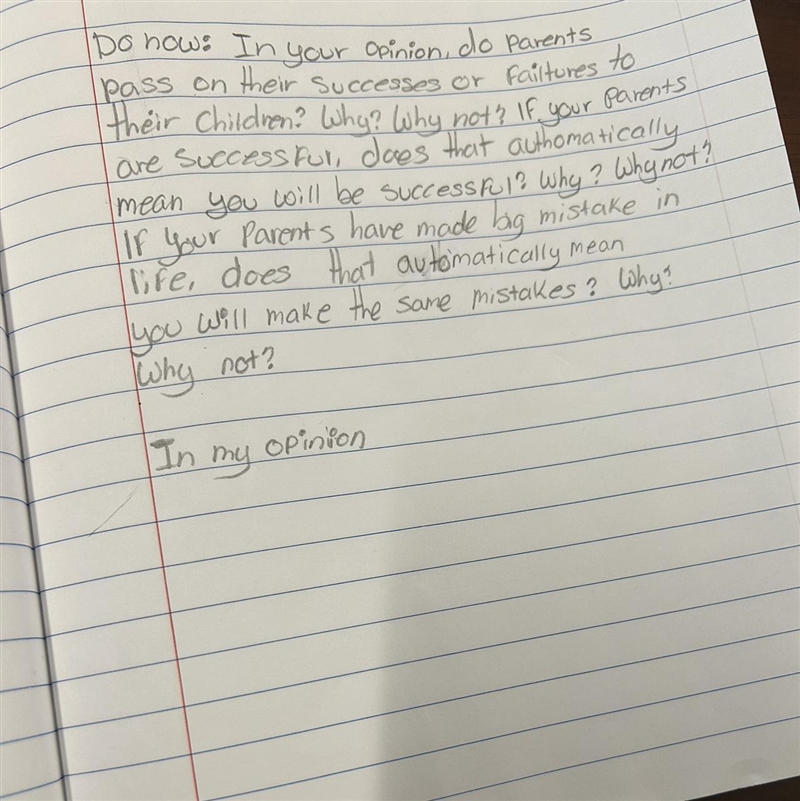 Do now: In your opinion, do parents
pass on their successes or failtures to
their children? Why? Why not? If your parents
are successful, does that authomatically
mean you will be successful? Why? Why not?
If your parents have made big mistake in
life, does that automatically mean
you will make the same mistakes? Why?
Why not?
In my opinion